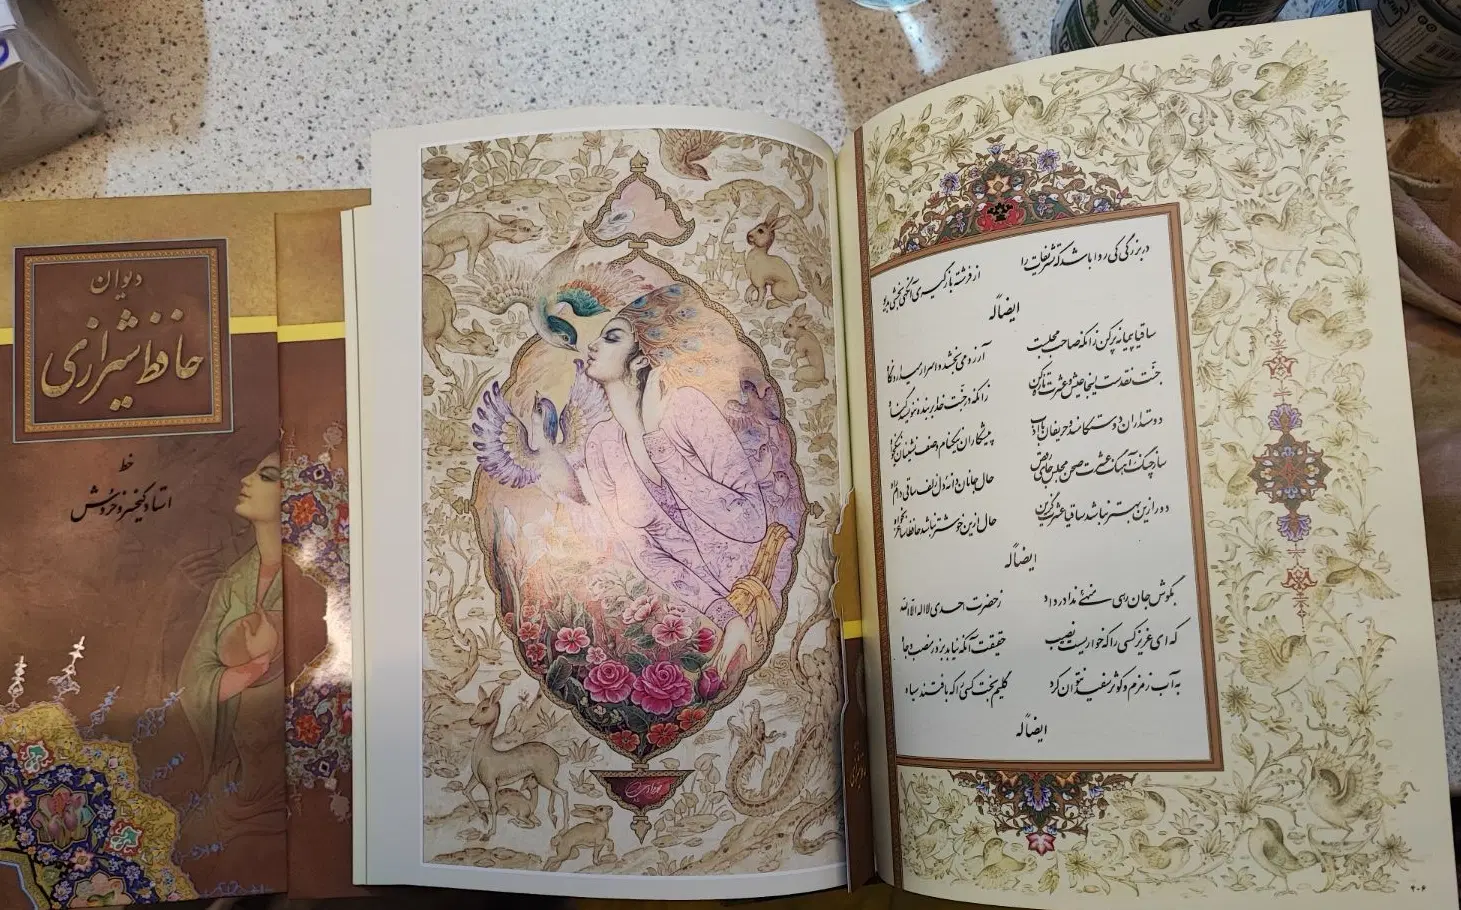 دیوان
حافظ شیرازی
خط
استاد کیخسرو خروش
در بزرگی کی روا باشد که تشریفات را
از فرشته بازگیری آنگهی بخشی بدیو
ایضاً له
ساقیا پیمانه پر کن زانکه صاحب مجلست
آرزو می بخشد و اسرار میدارد نگاه
جنت نقدست اینجا عیش و عشرت تازه کن
زانکه در جنت خدا بر بنده ننویسد گناه
دوستداران دوستکامند و حریفان با ادب
پیشکاران نیکنام و صف نشینان نیکخواه
ساز چنگ آهنگ عشرت صحن مجلس جای رقص
خال جانان دانه دل زلف ساقی دام راه
دور ازین بهتر نباشد ساقیا عشرت گزین
حال ازین خوشتر نباشد حافظا ساغر بخواه
ایضاً له
بگوش جان رهی منهیی ندا در داد
ز حضرت احدی لا اله الا الله
که ای عزیز کسی را که خواریست نصیب
حقیقت آنکه نیابد بزور منصب و جاه
به آب زمزم و کوثر سفید نتوان کرد
گلیم بخت کسی را که بافتند سیاه
ایضاً له
۴۰۶